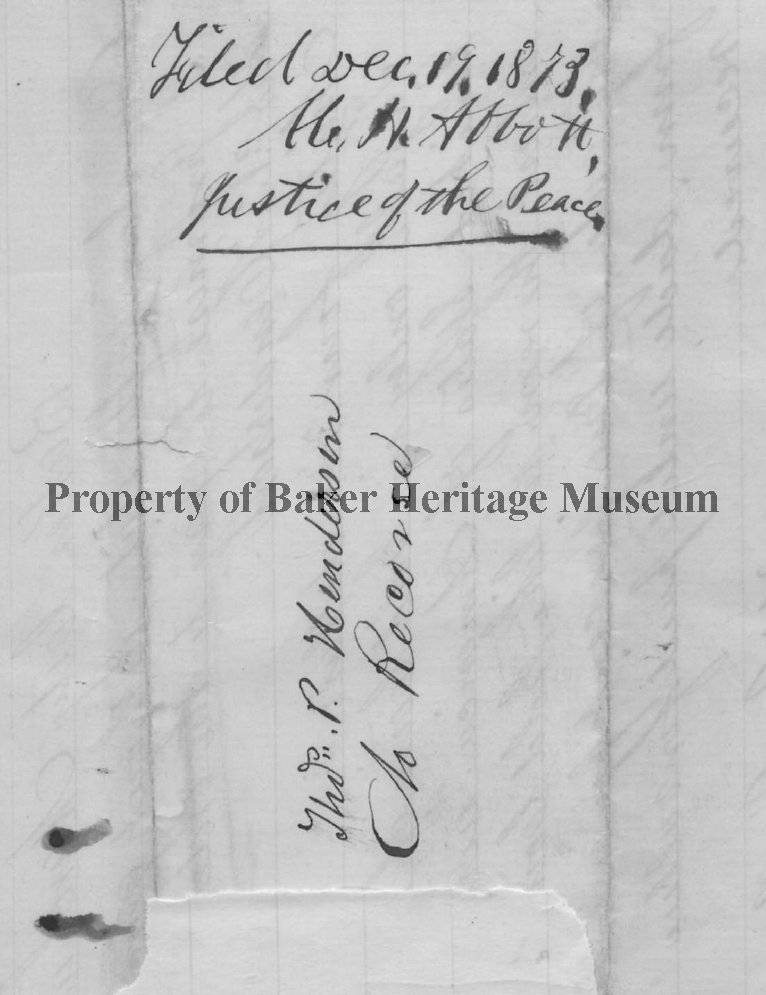 Filed Dec. 19. 1873.
H. Abbott,
Justice of the Peace.
Property of Baker Heritage Museum
Thos. P. Henderson
to Recorse